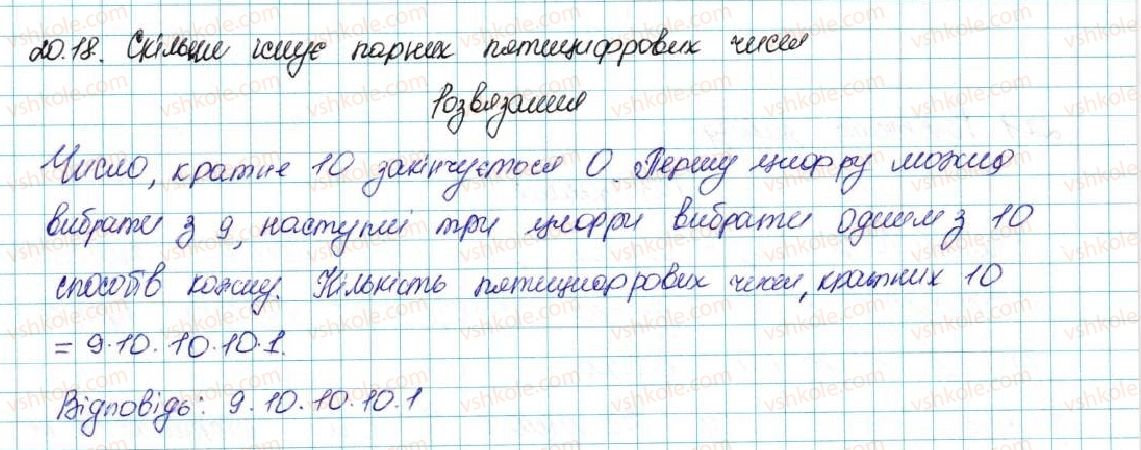 20.18. Скільки існує парних пятицифрових чисел
Розвязання
Число, кратне 10 закінчується 0. Першу цифру можна
вибрати з 9, наступні три цифри вибрати одним з 10
способів кожну. Кількість пятицифрових чисел, кратних 10
= 9·10·10·10·1.
Відповідь: 9·10·10·10·1